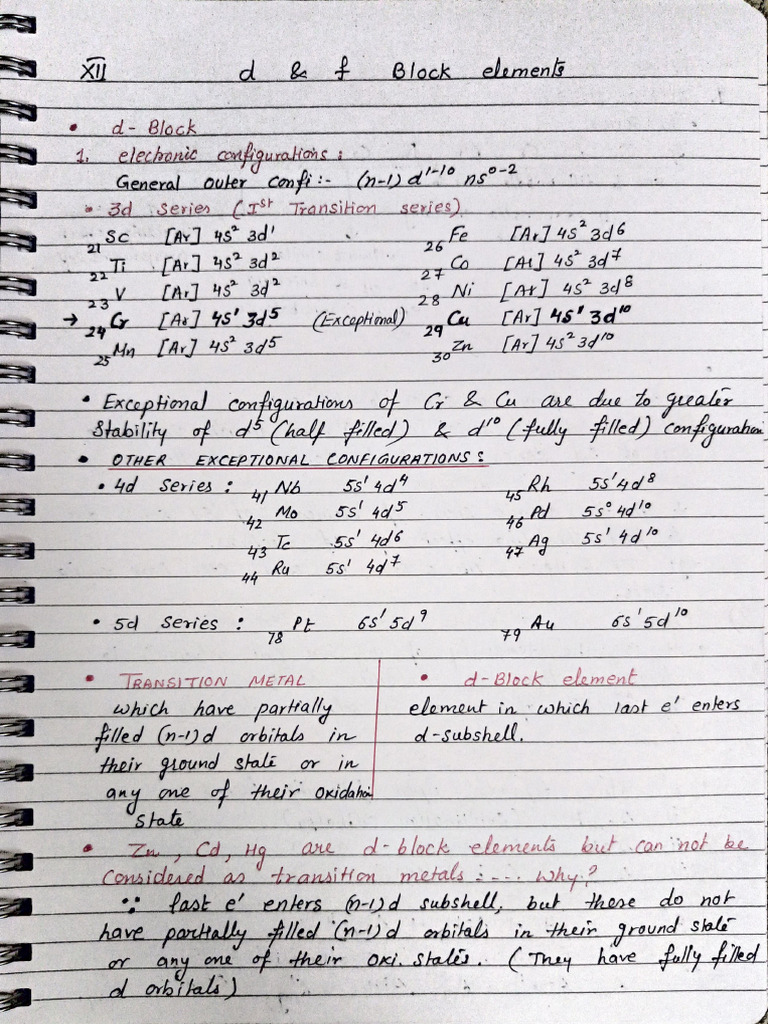 XII d & f Block elements
• d-Block
1. electronic configurations :
General outer confi :- (n-1) d¹⁻¹⁰ ns⁰⁻²
• 3d series (Iˢᵗ Transition series)
₂₁Sc [Ar] 4s² 3d¹ ₂₆Fe [Ar] 4s² 3d⁶
₂₂Ti [Ar] 4s² 3d² ₂₇Co [Ar] 4s² 3d⁷
₂₃V [Ar] 4s² 3d² ₂₈Ni [Ar] 4s² 3d⁸
→ ₂₄Cr [Ar] 4s¹ 3d⁵ (Exceptional) ₂₉Cu [Ar] 4s¹ 3d¹⁰
₂₅Mn [Ar] 4s² 3d⁵ ₃₀Zn [Ar] 4s² 3d¹⁰
• Exceptional configurations of Cr & Cu are due to greater
stability of d⁵ (half filled) & d¹⁰ (fully filled) configuration
• OTHER EXCEPTIONAL CONFIGURATIONS :
• 4d series : ₄₁Nb 5s¹ 4d⁴ ₄₅Rh 5s¹ 4d⁸
₄₂Mo 5s¹ 4d⁵ ₄₆Pd 5s⁰ 4d¹⁰
₄₃Tc 5s¹ 4d⁶ ₄₇Ag 5s¹ 4d¹⁰
₄₄Ru 5s¹ 4d⁷
• 5d series : ₇₈Pt 6s¹ 5d⁹ ₇₉Au 6s¹ 5d¹⁰
• TRANSITION METAL
which have partially
filled (n-1)d orbitals in
their ground state or in
any one of their oxidation
state
• d-Block element
element in which last e' enters
d-subshell.
• Zn, Cd, Hg are d-block elements but can not be
considered as transition metals :.... why?
∵ last e' enters (n-1)d subshell, but these do not
have partially filled (n-1)d orbitals in their ground state
or any one of their oxi. states. (They have fully filled
d orbitals)